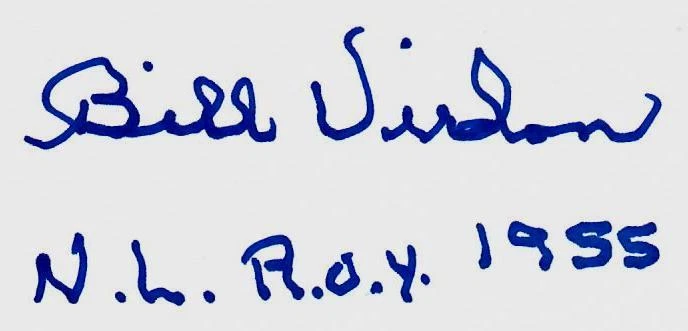 Bill Virdon
N.L. R.O.Y. 1955